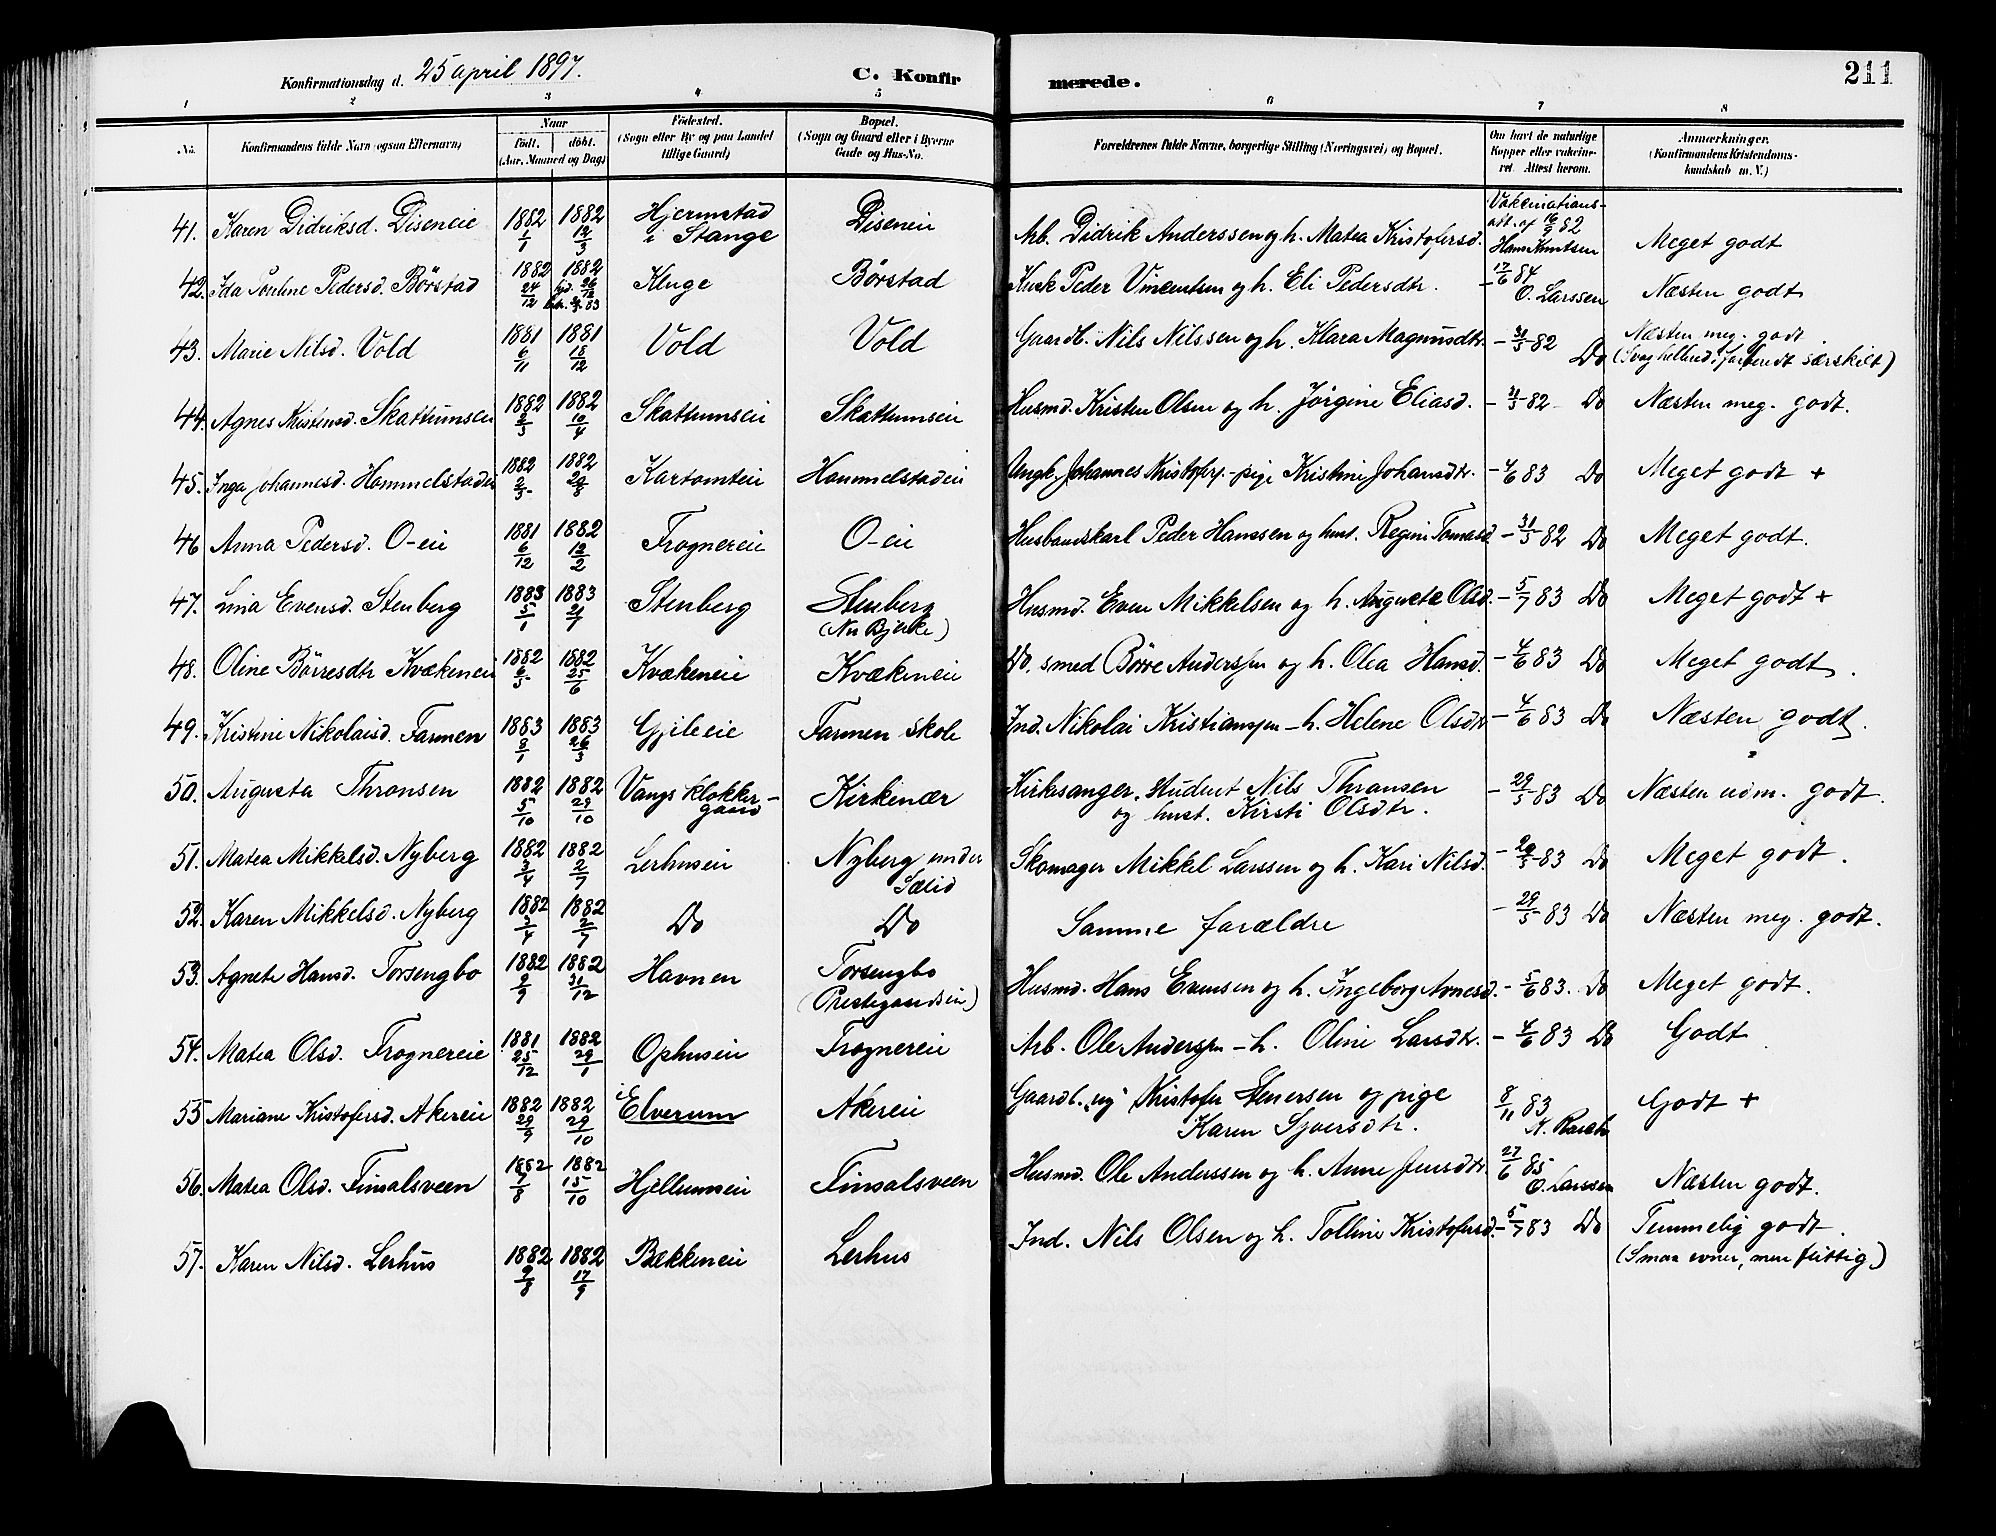 Konfirmationsdag d. 25 april 1897. C. Konfirmerede. 211
1 2 3 4 5 6 7 8
No. Konfirmandens fulde Navn (ogsaa Efternavn) Naar født. døbt. (Aar, Maaned og Dag) Fødested. (Sogn eller By og paa Landet tillige Gaard) Bopæl. (Sogn og Gaard eller i Byerne Gade og Hus-No. Forældrenes fulde Navne, borgerlige Stilling (Næringsvei) og Bopæl. Om havt de naturlige Kopper eller vakcineret. Attest herom. Anmærkninger. (Konfirmandens Kristendomskundskab m. V.)
41. Karen Didriksd. Diseneie 1882 1/1 1882 12/3 Hjermstad i Stange Diseneie Arb. Didrik Anderssen og h. Matea Kristofersd. Vakcinations-att. af 16/9 82 Hans Knutsen Meget godt
42. Ida Pouline Pedersd. Børstad 1882 24/12 1882 hjd. 26/12 83 Kluge Børstad Kusk Peder Vincentsen og h. Eli Pedersdtr. - 17/6 84 O. Larssen Næsten godt
43. Marie Nilsd. Vold 1881 6/11 1881 18/12 Vold Vold Gaardb. Nils Nilssen og h. Klara Magnusdtr. - 31/5 82 Do Næsten meg. godt. (Svag helbred, forberedt særskilt)
44. Agnes Kristensd. Skattumseie 1882 2/3 1882 10/4 Skattumseie Skattumseie Husmd. Kristen Olsen og h. Jørgine Eliasd. - 31/5 82 - Do Næsten meg. godt.
45. Inga Johannesd. Hommelstadeie 1882 2/5 1882 20/8 Kartomteie Hommelstadeie Ungk. Johannes Kristofers. - pige Kristine Johansdtr. - 4/6 83 Do Meget godt +
46 Anna Pedersd. O-eie 1881 6/12 1882 12/2 Frognereie O-eie Husbondskarl Peder Hanssen og hust. Regine Tomasd - 31/5 82 Do Meget godt.
47. Lina Evensd. Stenberg 1883 5/1 1883 21/7 Stenberg Stenberg (Nu Bjerke) Husmd. Even Mikkelsen og h. Auguste Olsd. - 5/7 83 Do Meget godt +
48. Oline Börresdtr Kvækeneie 1882 2/5 1882 25/6 Kvækeneie Kvækeneie Do. smed Börre Anderssen og h. Olea Hansd. - 4/6 83 Do Meget godt.
49. Kristine Nikolaisd. Farmen 1883 8/1 1883 26/3 Gjileeie Farmen skole Ind. Nikolai Kristianssen - h. Helene Olsdtr - 4/6 83 Do Næsten godt.
50. Augusta Thronsen 1882 5/10 1882 29/10 Vangs klokker-gaard Kirkenær Kirkesanger, Student Nils Thronsen og hust. Kirsti Olsdtr. - 29/5 83 Do Næsten udm. godt.
51. Matea Mikkelsd. Nyberg 1882 3/4 1882 2/7 Lerhuseie Nyberg under Sælid Skomager Mikkel Larssen og h. Kari Nilsd. - 29/5 83 Do Meget godt.
52. Karen Mikkelsd. Nyberg 1882 3/4 1882 2/7 Do Do Samme forældre - 29/5 83 Do Næsten meg. godt.
53. Agnete Hansd. Torsengbo 1882 2/9 1882 31/12 Havnen Torsengbo (Prestegaardseie) Husmd. Hans Evensen og h. Ingeborg Arnesd. - 5/6 83. Do Meget godt.
54. Matea Olsd. Frognereie 1881 25/12 1882 29/1 Ophuseie Frognereie Arb. Ole Anderssen - h. Oline Larsdtr. - 4/6 83 Do Godt
55 Mariane Kristofersd. Akereie 1882 29/9 1882 29/10 i Elverum Akereie Gaardb. ug Kristofer Stenersen og pige Karen Syversdtr. 8/11 83 Godt +
56. Matea Olsd. Finsalsveen 1882 7/8 1882 15/10 Hjellumseie Finsalsveen Husmd. Ole Anderssen og h. Anne Jensdtr. 27/6 85 O. Larssen Næsten godt.
57. Karen Nilsd. Lerhus 1882 9/8 1882 17/9 Bækkeneie Lerhus Ind. Nils Olsen og h. Tolline Kristofersd. - 5/7 83 Do Temmelig godt. (Smaa evner, men flittig)